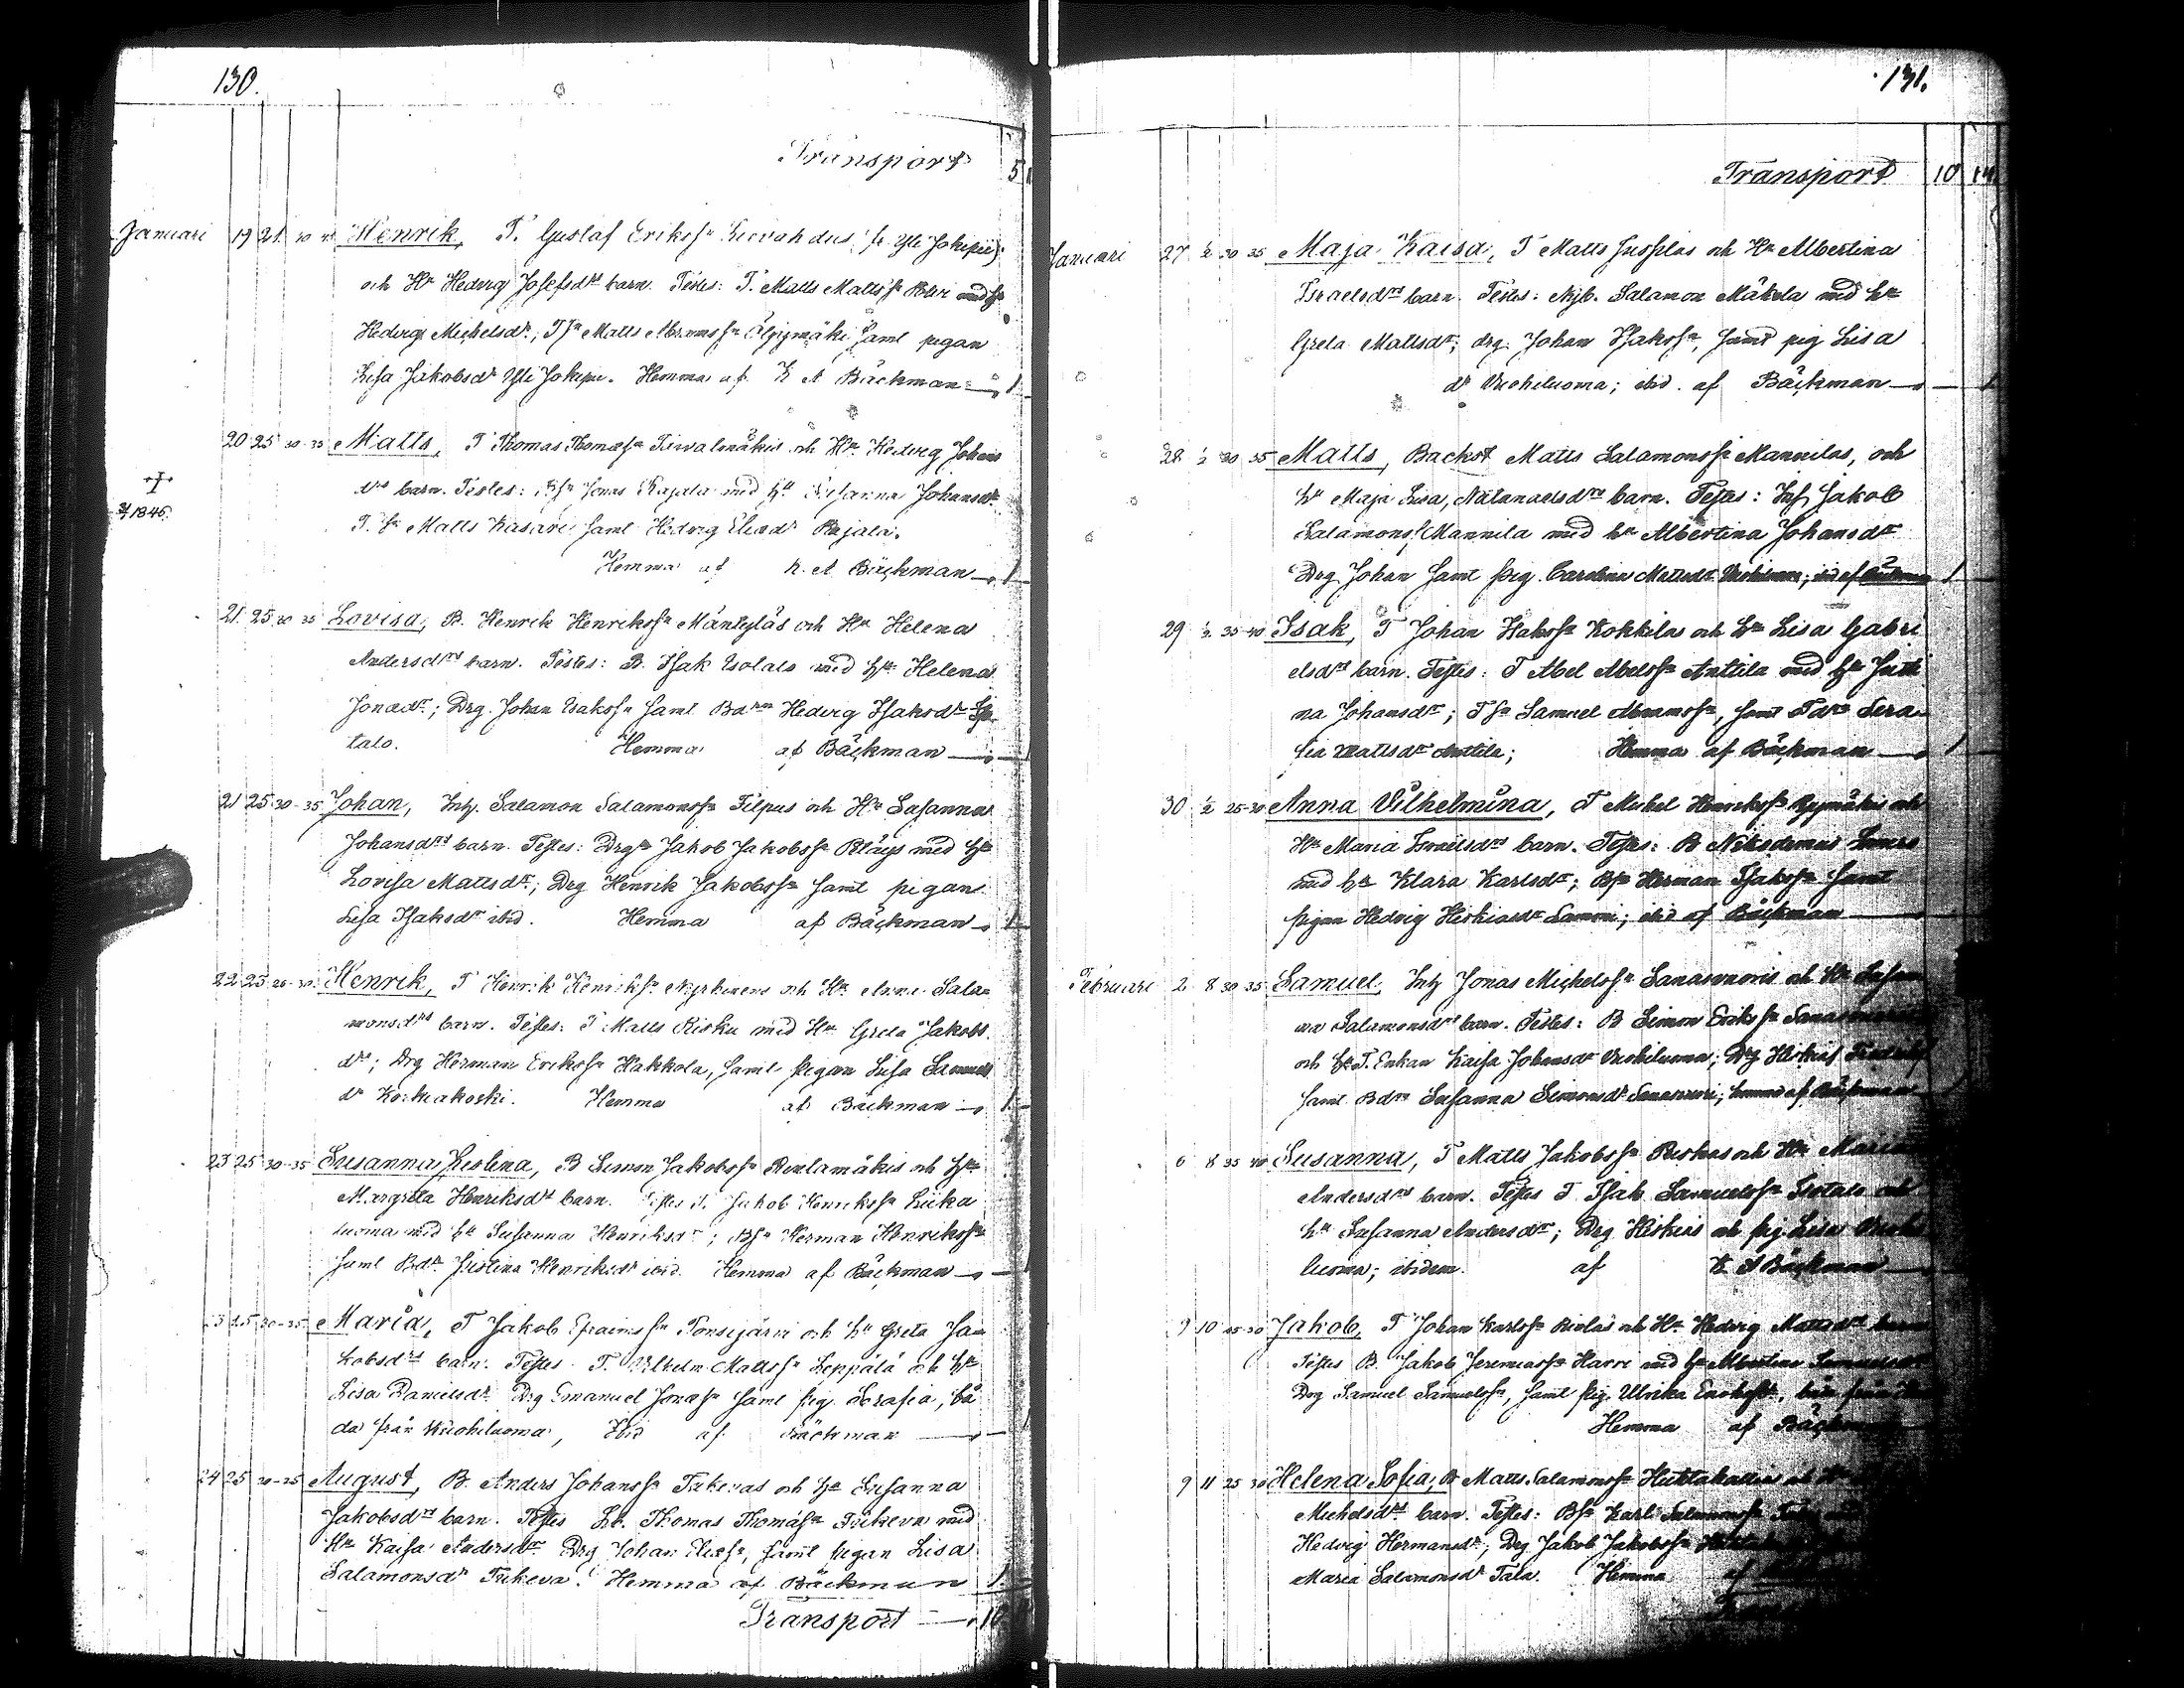 130.
Transport 5
Januari 19 21 30 Henrik, T. Gustaf Eriksſn
och Hu Hedvig Josefsdrs barn. Testes: T. Matts Mattsſn med hu
Hedvig Michelsdr, Tſn Matts Abramsſn samt pigan
Lisa Jakobsdr Yli Jokipii. Hemma af K A Bäckman 1
20 25 30-35 Matts, T Thomas Thomæſn och Hu Hedvig Johans
drs barn. Testes: Bſn Jonas Rajala med hu Susanna Johansdr
T. sn Matts Kasari samt Hedvig Eliædr Rajala.
1846.
Hemma af K. A Bäckman 1
21 25 30 35 Lovisa, B. Henrik Henriksſn Mäntyläs och Hu Helena
Andersdrs barn. Testes: B. Isak med hu Helena
Jonædr; Drg. Johan Isaksſn samt Bdrn Hedvig Isaksdr
talo. Hemma af Bäckman
21 25 30-35 Johan, Inh. Salamon Salamonsſn Filpus och Hu Susanna
Johansdrs barn. Testes: Drgn Jakob Jakobsſn med hu
Lovisa Mattsdr; Drg Henrik Jakobsſn samt pigan
Lisa Isaksdr ibid. Hemma af Bäckman 1
22 25 Henrik, T Henrik Henriksſn och Hu Anna Sala=
monsdrs barn. Testes: T Matts Risku med Hu Greta Jakobs
dr; Drg Herman Eriksſn Hakkola, samt pigan Lisa Samuels
dr Koskiakoski. Hemma af Bäckman 1
23 25 30-35 Susanna Justina, B Simon Jakobsſn och hu
Margreta Henriksdrs barn. Testes T. Jakob Henriksſn Liika
luoma med hu Susanna Henriksdr; Bſn Herman Henriksſn
samt Bdr Justina Henriksdr ibid. Hemma af Bäckman
25 30-35 Maria, T Jakob Efraimsſn Ponsijärvi och hu Greta Ja=
kobsdrs barn. Testes T. Vilhelm Mattsſn Leppälä och hu
Lisa Danielsdr Drg Emanuel Jonæſn samt pig. Serafia, bå
da från Vuohiluoma, Ibid af Bäckman
24 25 August, B. Anders Johansſn och hu Susanna
Jakobsdrs barn. Testes Thomas Thomæſn med
Hu Kaisa Andersdr Drg Johan Eliæſn, samt pigan Lisa
Salamonsdr Hemma af Bäckman 1
Transport
131.
Transport 10
Januari 27 ½ 30 35 Maja Kaisa, T Matts och Hu Albertina
Israelsdrs barn. Testes: Nyb. Salamon Mäkela med hu
Greta Mattsdr; drg. Johan Isaksſn, samt pig Lisa
dr Vuohiluoma; ibid. af Bäckman
28 ½ 30 35 Matts, Backst Matts Salamonsſn Mannilas, och
hu Maja Lisa, Natanaelsdrs barn. Testes: Inh Jakob
Salamonsſn Mannila med hu Albertina Johansdr
Drg Johan samt pig. Carolina Mattsdr Vuohiluoma; ibid af Bäckman 1
29 ½ 35 40 Isak, T Johan Isaksſn Kokkilas och hu Lisa Gabri
elsdrs barn. Testes: T Abel Abelsſn Anttila med hu Justi
na Johansdr; Tſn Samuel Abramsſn, samt Tdrn Sera=
fia Mattsdr Anttila; Hemma af Bäckman 1
30 ½ 25-30 Anna Vilhelmina, T Mickel Henriksſn och
Hu Maria Israelsdrs barn. Testes: B Nikodemus
med hu Klara Karlsdr; Bſn Herman Isaksſn samt
pigan Hedvig Hiskiasdr Lammi; ibid af Bäckman
Februari 2 8 30 35 Samuel, Inh Jonas Michelsſn Sanasvuoris och Hu Susan
na Salamonsdrs barn. Testes: B Simon Eriksſn Sanasvuori
och hu T. Enkan Kaisa Johansdr Vuohiluoma; Drg Hiskias
samt Bdrn Susanna Simonsdr Sanasvuori; hemma af Bäckman
6 8 35 40 Susanna, T Matts Jakobsſn Riskus och Hu Maria
Andersdrs barn. Testes T Isak Samuelsſn och
hu Susanna Andersdr; Drg Hiskias och pig. Lisa Vuohi
luoma; ibidem. af K A Bäckman
9 10 Jakob, T Johan Karlsſn och Hu Hedvig Mattsdrs barn
Testes B. Jakob Jeremiasſn Harri med hu Albertina
Drg Samuel Samuelsſn, samt pig. Ulrika
Hemma af Bäckman
9 11 25 30 Helena Sofia, B Matts Salamonsſn och Hu
Michelsdrs barn. Testes: Bſn Karl Salamonsſn
Hedvig Hermansdr; Drg Jakob Jakobsſn
Maria Salamonsdr Tala. Hemma af